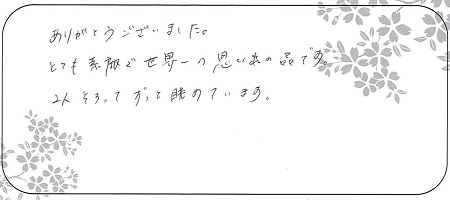 ありがとうございました。
とても素敵で世界一の思い出の品です。
2人そろってずって眺めています。